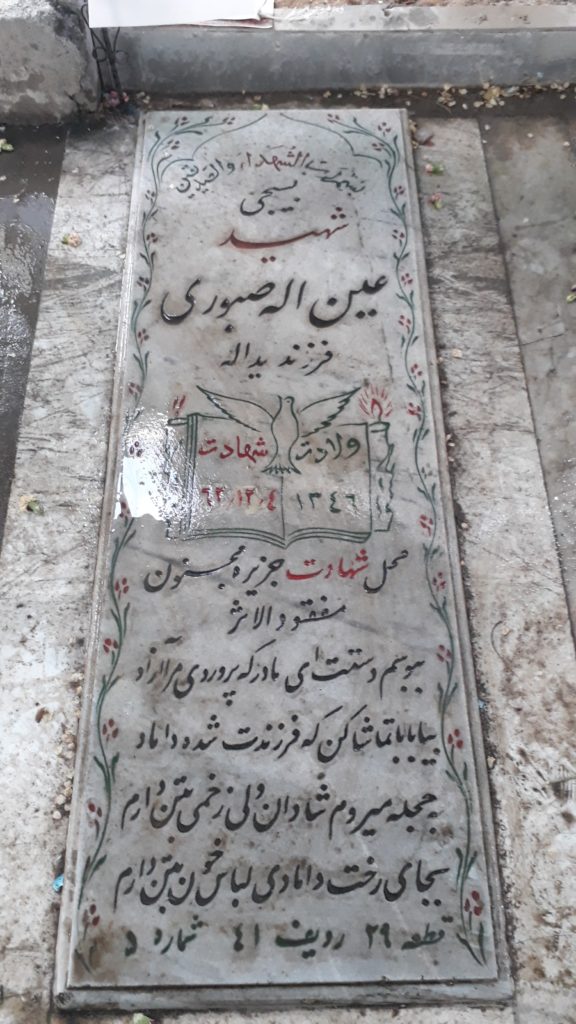 بسم رب الشهداء والصدیقین
بسیجی
شهید
عین اله صبوری
فرزند یداله
ولادت شهادت
۱۳٤٦ ٦٢/١٢/٤
محل شهادت جزیره مجنون
مفقود الاثر
ببوسم دستت ای مادر که پروردی مرا آزاد
بیا بابا تماشا کن که فرزندت شده داماد
به حجله میروم شادان ولی زخمی بتن دارم
بجای رخت دامادی لباس خون بتن دارم
قطعه ۲۹ ردیف ٤١ شماره ۵